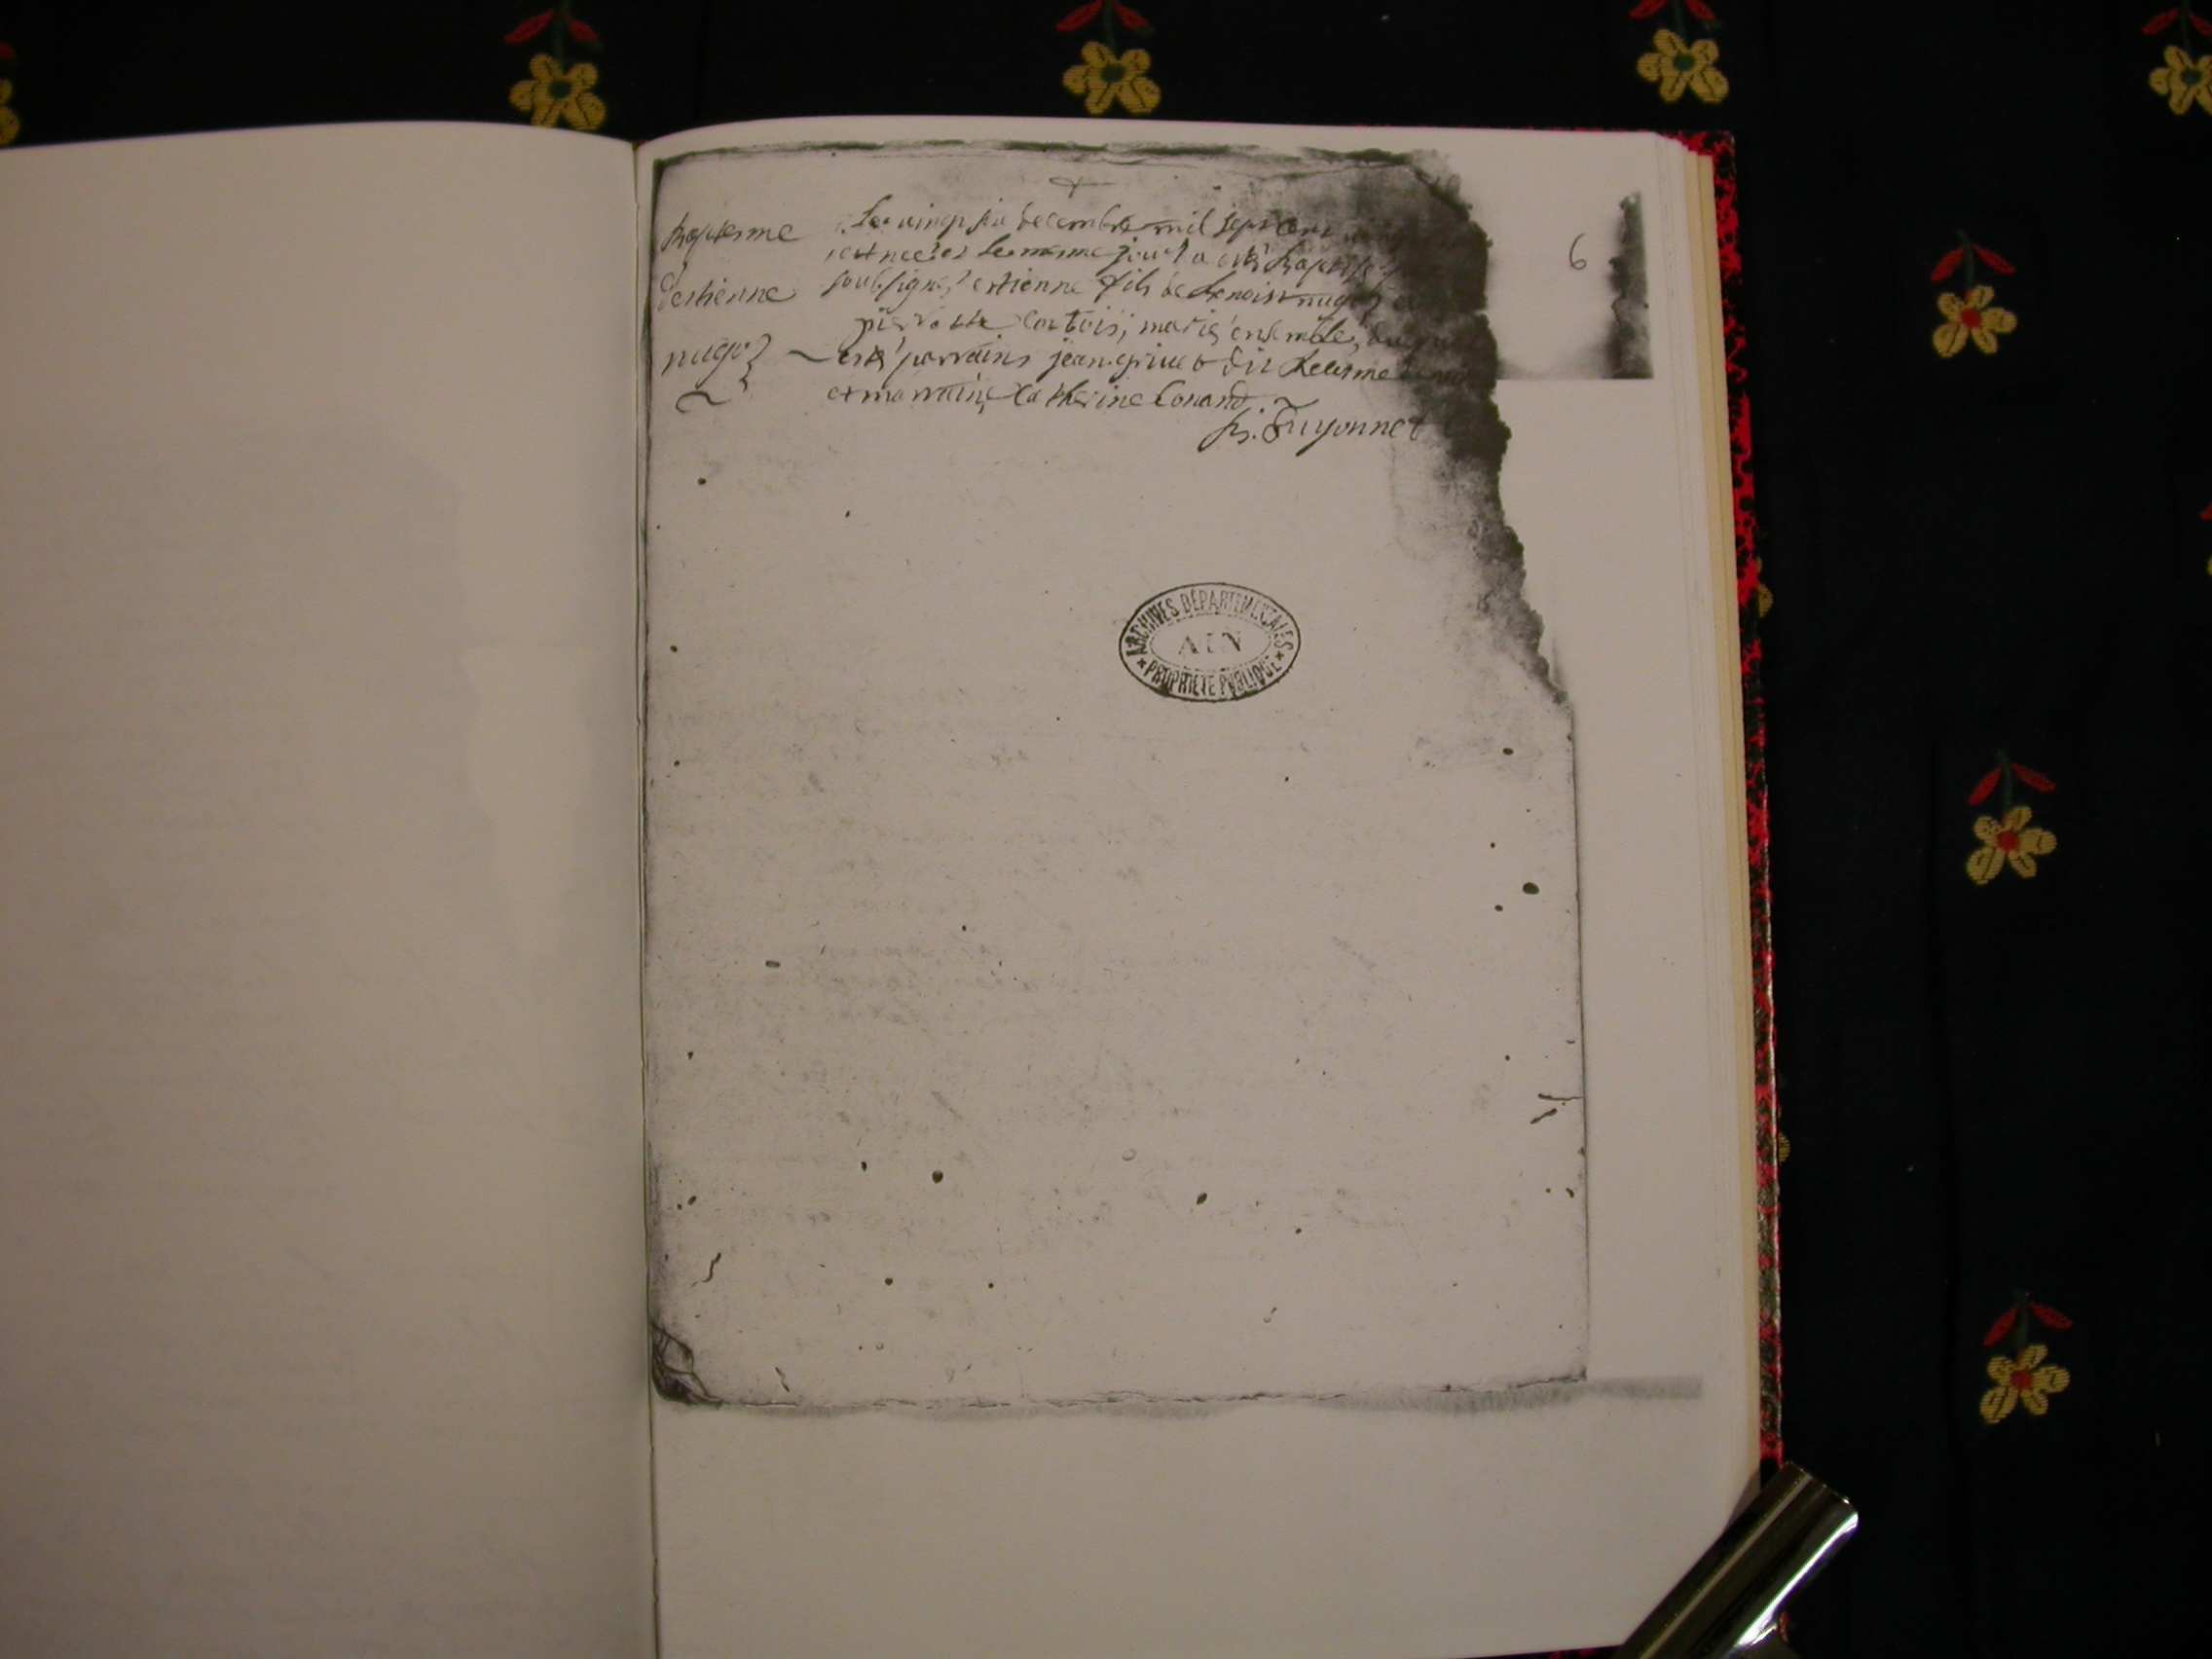 Baptesme
d'estienne
nugoz
Le vingt six decembre mil sept cens
est nee et le mesme jour a esté Baptisé
soubsigné estienne fils de Benoist nugoz et
pierrotte Contois, mariés ensemble,
esté parrains jean grivet dit
et marraine Catherine Conand
Guyonnet
6
ARCHIVES DÉPARTEMENTALES
AIN
PROPRIÉTÉ PUBLIQUE